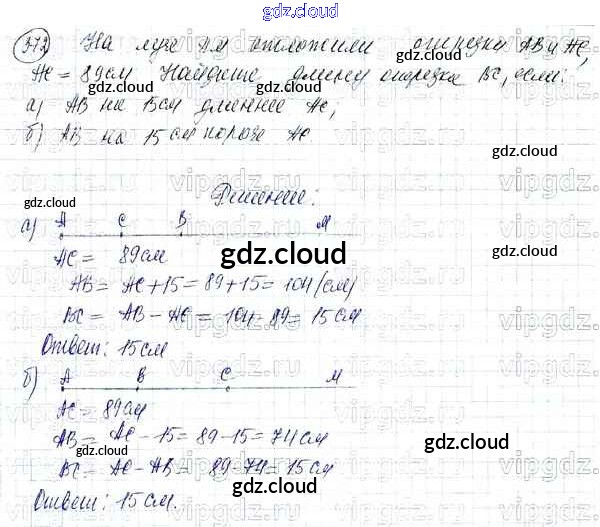 gdz.cloud
372 На луче АМ отложили отрезки АВ и АС,
АС = 89см Найдите длину отрезка ВС, если:
а) АВ на 15см длиннее АС;
б) АВ на 15 см короче АС
gdz.cloud
gdz.cloud
Решение:
а) А С В М
gdz.cloud
АС = 89см
АВ = АС + 15 = 89 + 15 = 104 (см)
ВС = АВ - АС = 104 - 89 = 15 см
Ответ: 15 см
gdz.cloud
б) А В С М
АС = 89см
АВ = АС - 15 = 89 - 15 = 74 см
ВС = АС - АВ = 89 - 74 = 15 см
gdz.cloud
gdz.cloud
Ответ: 15 см.
gdz.cloud
gdz.cloud